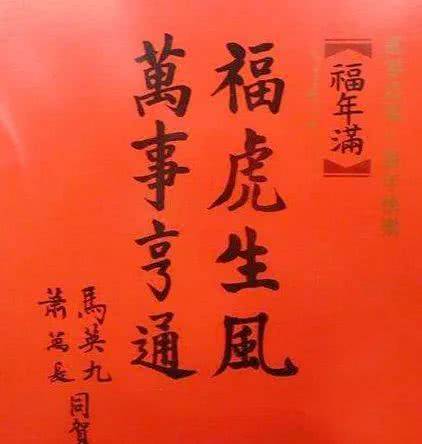 【福年滿】
福虎生風
萬事亨通
馬英九
蕭萬長
同賀